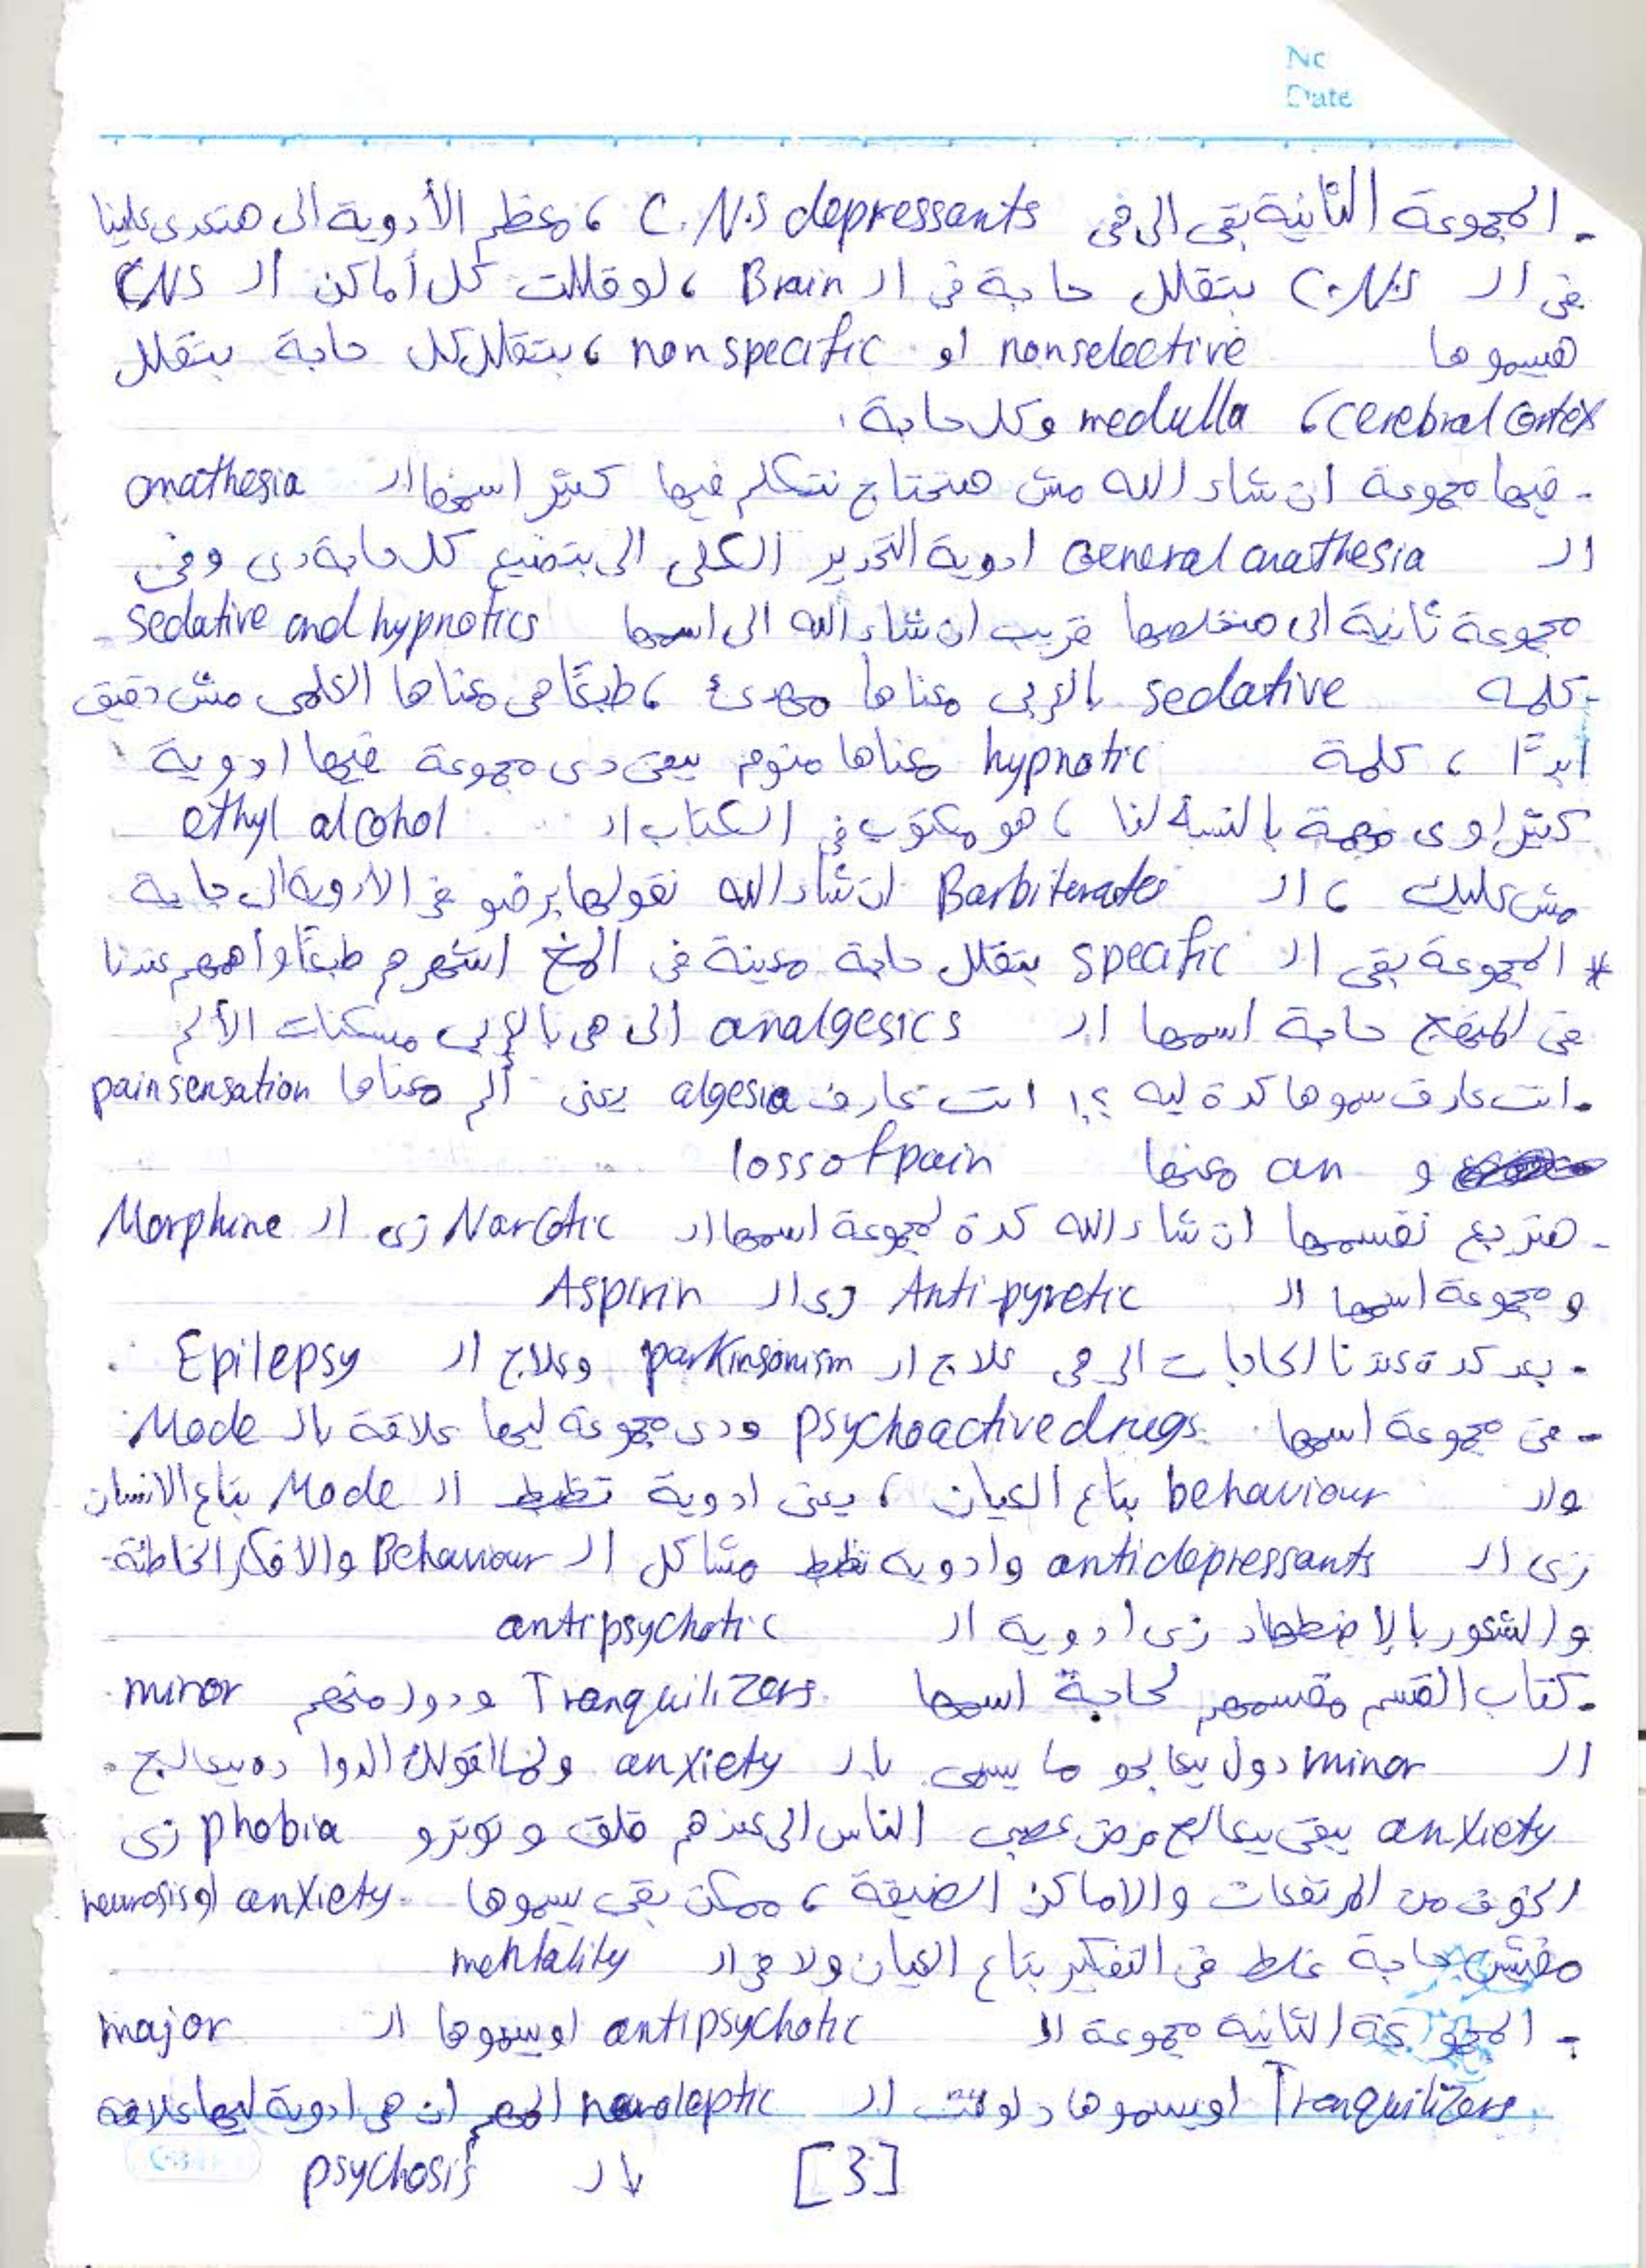 No
Date
- المجموعة الثانية بقى الى فى C.N.S depressants ، معظم الأدوية الى هتعدى علينا
فى ال C.N.S بتقلل حاجة فى ال Brain ، لو قللت كل أماكن ال CNS
هيسموها nonselective او nonspecific ، بتقلل كل حاجة بتقلل
cerebral Cortex ، medulla وكل حاجة .
- فيها مجموعة ان شاء الله مش هنحتاج نتكلم فيها كتير اسمها ال anathesia
ال General anathesia ادوية التخدير الكلى الى بتضيع كل حاجة دى وفى
مجموعة ثانية الى هنخلصها قريب ان شاء الله الى اسمها sedative and hypnotics
- كلمة sedative بالعربى معناها مهدئ ، طبعًا هى معناها العلمى مش دقيق
ابدًا ، كلمة hypnotic معناها منوم يبقى دى مجموعة فيها ادوية
كتير اوى مهمة بالنسبة لنا ، هو مكتوب فى الكتاب ال ethyl alcohol
مش عليك ، ال Barbiterates ان شاء الله نقولها برضو فى الادوية الى جاية
* المجموعة بقى ال specific بتقلل حاجة معينة فى المخ اشهرهم طبعًا وأهمهم عندنا
فى المنهج حاجة اسمها ال analgesics الى هى بالعربى مسكنات الألم
- انت عارف سموها كدة ليه ؟! انت عارف algesia يعنى ألم معناها pain sensation
و an معنها loss of pain
- هنرجع نقسمها ان شاء الله كدة لمجموعة اسمها ال Narcotic زى ال Morphine
و مجموعة اسمها ال Anti-pyretic زى ال Aspirin
- بعد كدة عندنا الحاجات الى هى علاج ال parkinsonism وعلاج ال Epilepsy .
- فى مجموعة اسمها psychoactive drugs ودى مجموعة ليها علاقة بال Mode
وال behaviour بتاع العيان ، يعنى ادوية تظبط ال Mode بتاع الانسان
زى ال antidepressants وادوية تظبط مشاكل ال Behaviour والافكار الخاطئة
و الشعور بالإضطهاد زى ادوية ال antipsychotic
- كتاب القسم مقسمهم لحاجة اسمها Tranquilizers ودول منهم minor
ال minor دول بيعالجو ما يسمى بال anxiety ولما اقولك الدوا ده بيعالج
anxiety يبقى بيعالج مرض عصبى الناس الى عندهم قلق و توترو phobia زى
الخوف من المرتفعات والاماكن الضيقة ، ممكن بقى يسموها anxiety او neurosis
مفيش حاجة غلط فى التفكير بتاع العيان ولا فى ال mentality
- المجموعة الثانية مجموعة ال antipsychotic او بيسموها ال major
Tranquilizers اوبيسموها دلوقت ال neuroleptic المهم ان هى ادوية ليها علاقة
بال psychosis
[3]